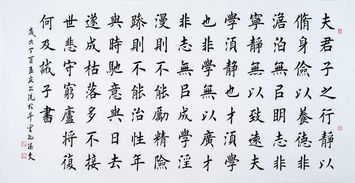 夫君子之行靜以
脩身儉以養德非
澹泊無以明志非
寧靜無以致遠夫
學湏靜也才湏學
也非學無以廣才
非志無以成學淫
漫則不能勵精險
躁則不能治性年
與時馳意與日去
遂成枯落多不接
世悲守窮廬將復
何及誡子書
歲次丁酉孟夏